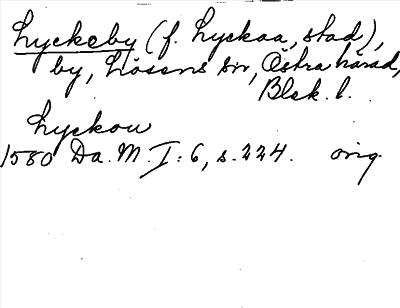 Lyckeby (f. Lyckaa, stad),
by, Lösens sn, Östra härad,
Blek. l.
Lyckou
1580 Da. M. I: 6, s. 224. orig.